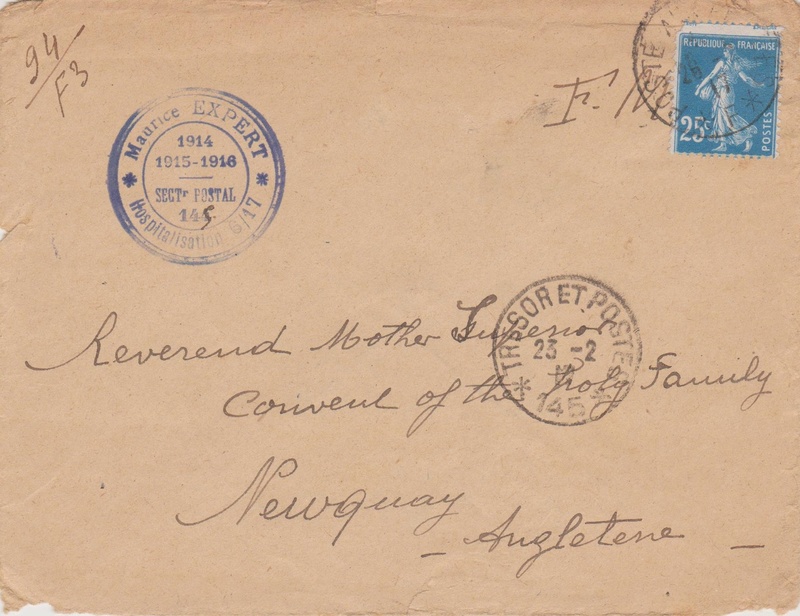 94/F3
Maurice EXPERT
1914
1915-1916
SECTr POSTAL
145
Hospitalisation 6/17
F. M.
REPUBLIQUE FRANÇAISE
25c
POSTES
TRESOR ET POSTES
23 -2
* 145 *
Reverend Mother Superior
Convent of the Holy Family
Newquay
- Angleterre -